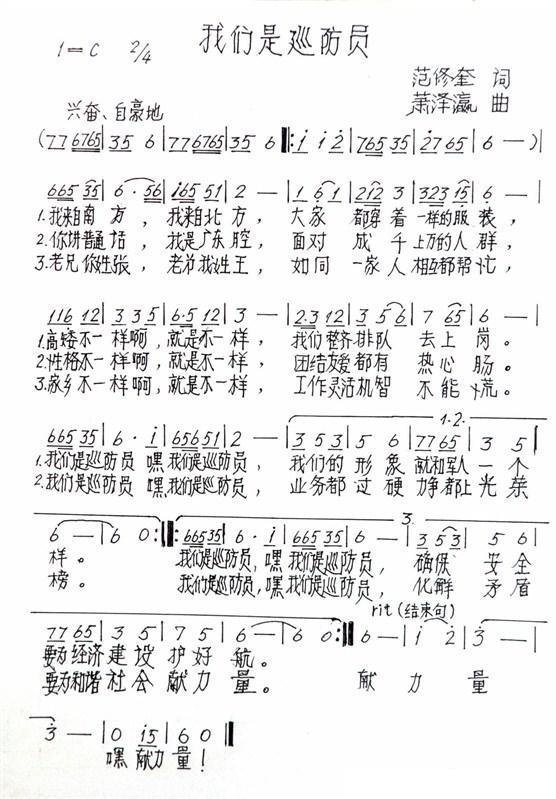 我们是巡防员
1=C 2/4
范修奎 词
萧泽瀛 曲
兴奋、自豪地
(77 6765|35 6|77 6765|35 6:‖:i i 2|765 35|2765|6 —)|
665 35|6 · 56|i65 51|2 —|1 6 1|212 3|323 15|6 —|
1.我来自南方，我来自北方，大家都穿着一样的服装，
2.你讲普通话，我是广东腔，面对成千上万的人群，
3.老兄你姓张，老弟我姓王，如同一家人相互都帮忙，
116 12|3 3 5|6·5 12|3 —|2·3 12|3 5 6|7 65|6 —|
1.高矮不一样啊，就是不一样，我们整齐排队去上岗。
2.性格不一样啊，就是不一样，团结友爱都有热心肠。
3.家乡不一样啊，就是不一样，工作灵活机智不能慌。
1.2.
665 35|6 · i|656 51|2 —|3 5 3|5 6|77 65|3 5|
1.我们是巡防员嘿我们是巡防员，我们的形象就和军人一个
2.我们是巡防员嘿我们是巡防员，业务都过硬力争都上光荣
3.
6 —|6 0:‖:665 35|6 · i|665 35|6 —|3 5 3|5 6|
样。我们是巡防员，嘿我们是巡防员，确保安全
榜。我们是巡防员，嘿我们是巡防员，化解矛盾
rit(结束句)
77 65|3 5|7 5|6 —|6 0:‖6 —|i 2|3 —|
要为经济建设护好航。
要为和谐社会献力量。献力量
3 —|0 i5|6 0‖
嘿献力量！